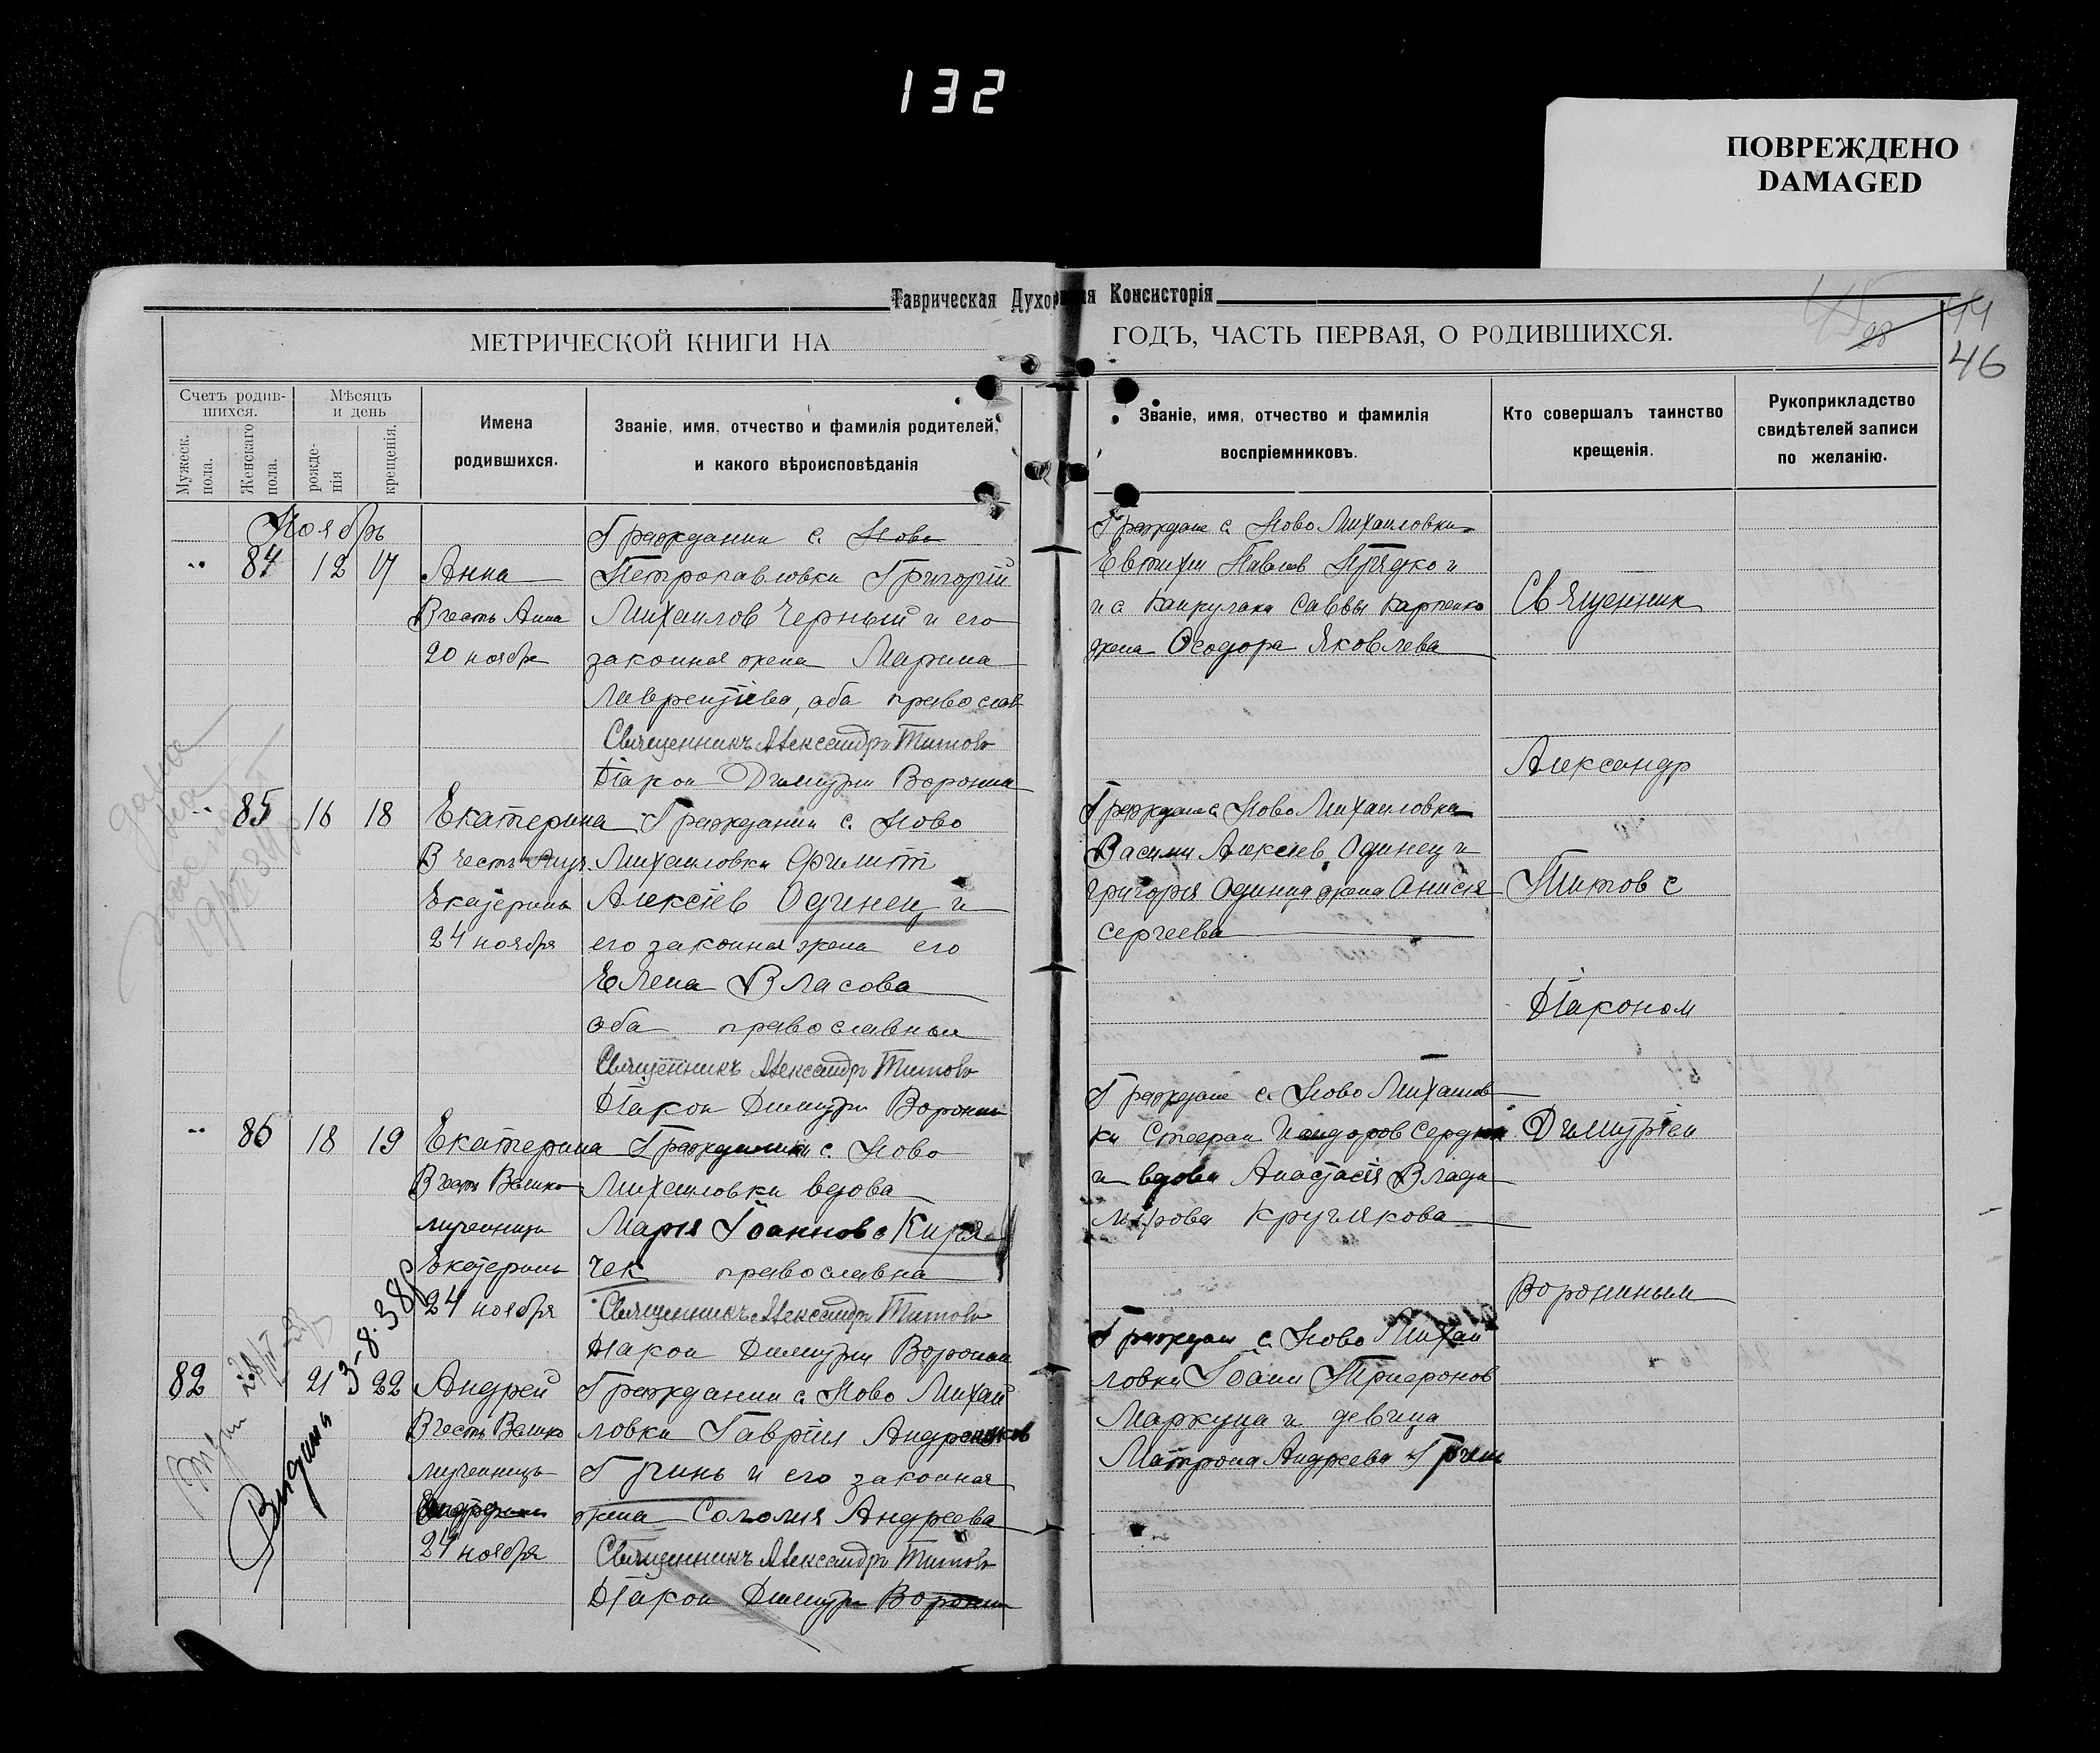 132
ПОВРЕЖДЕНО
DAMAGED
Таврическая Духовная Консисторія
44
46
98
МЕТРИЧЕСКОЙ КНИГИ НА
ГОДЪ, ЧАСТЬ ПЕРВАЯ, О РОДИВШИХСЯ.
Счетъ родив-
шихся.
Мужеск.
пола.
Женскаго
пола.
Мѣсяцъ
и день
рожде-
нія
крещенія.
Имена
родившихся.
Званіе, имя, отчество и фамилія родителей,
и какого вѣроисповѣданія
Званіе, имя, отчество и фамилія
воспріемниковъ.
Кто совершалъ таинство
крещенія.
Рукоприкладство
свидѣтелей записи
по желанію.
Ноябрь
84 12 17
Анна
В честь Анна
20 ноября
Гражданин с. Ново
Петропавловки Григорій
Михаилов Черный и его
законная жена Марина
Лаврентіева, оба православ
Священникъ Александръ Титовъ
Діакон Димитри Воронин
Граждане с. Ново Михаиловки
Евтихи Павлов Прядко и
и с. Канкулака Саввы Карпенко
жена Феодора Яковлева
85 16 18
Екатерина
В честь
Екатерины
24 ноября
Гражданин с. Ново
Михаиловки Филипп
Алексіев Одинец и
его законная жена его
Елена Власова
оба православныи
Священникъ Александръ Титовъ
Діакон Димитри Воронин
Граждане с. Ново Михаиловки
Васили Алексіев Одинец и
Григорія Одинца жена Анисія
Сергеева
86 18 19
Екатерина
В честь Велико
мученицы
Екатерины
24 ноября
Гражданин с. Ново
Михаиловки вдова
Марія Іоаннова Кири
чек православна
Священникъ Александръ Титовъ
Діакон Димитри Воронин
Граждане с. Ново Михаилов
ки Стефан Исидоров
и вдова Анастасія Влади
мірова Круглякова
82 21 22
3-8.38
Андрей
В честь Велико
мученицы
24 ноября
Гражданин с. Ново Михай
ловки Гавріил
Гринь и его законная
жена Соломія Андреева
Священникъ Александръ Титовъ
Діакон Димитри Воронин
Граждан с. Ново Михаи
ловки Іоанн Трифонов
Маркуца и девица
Матрона Андреева Гринь
Священник
Александр
Титов с
Діаконом
Димитріем
Ворониным